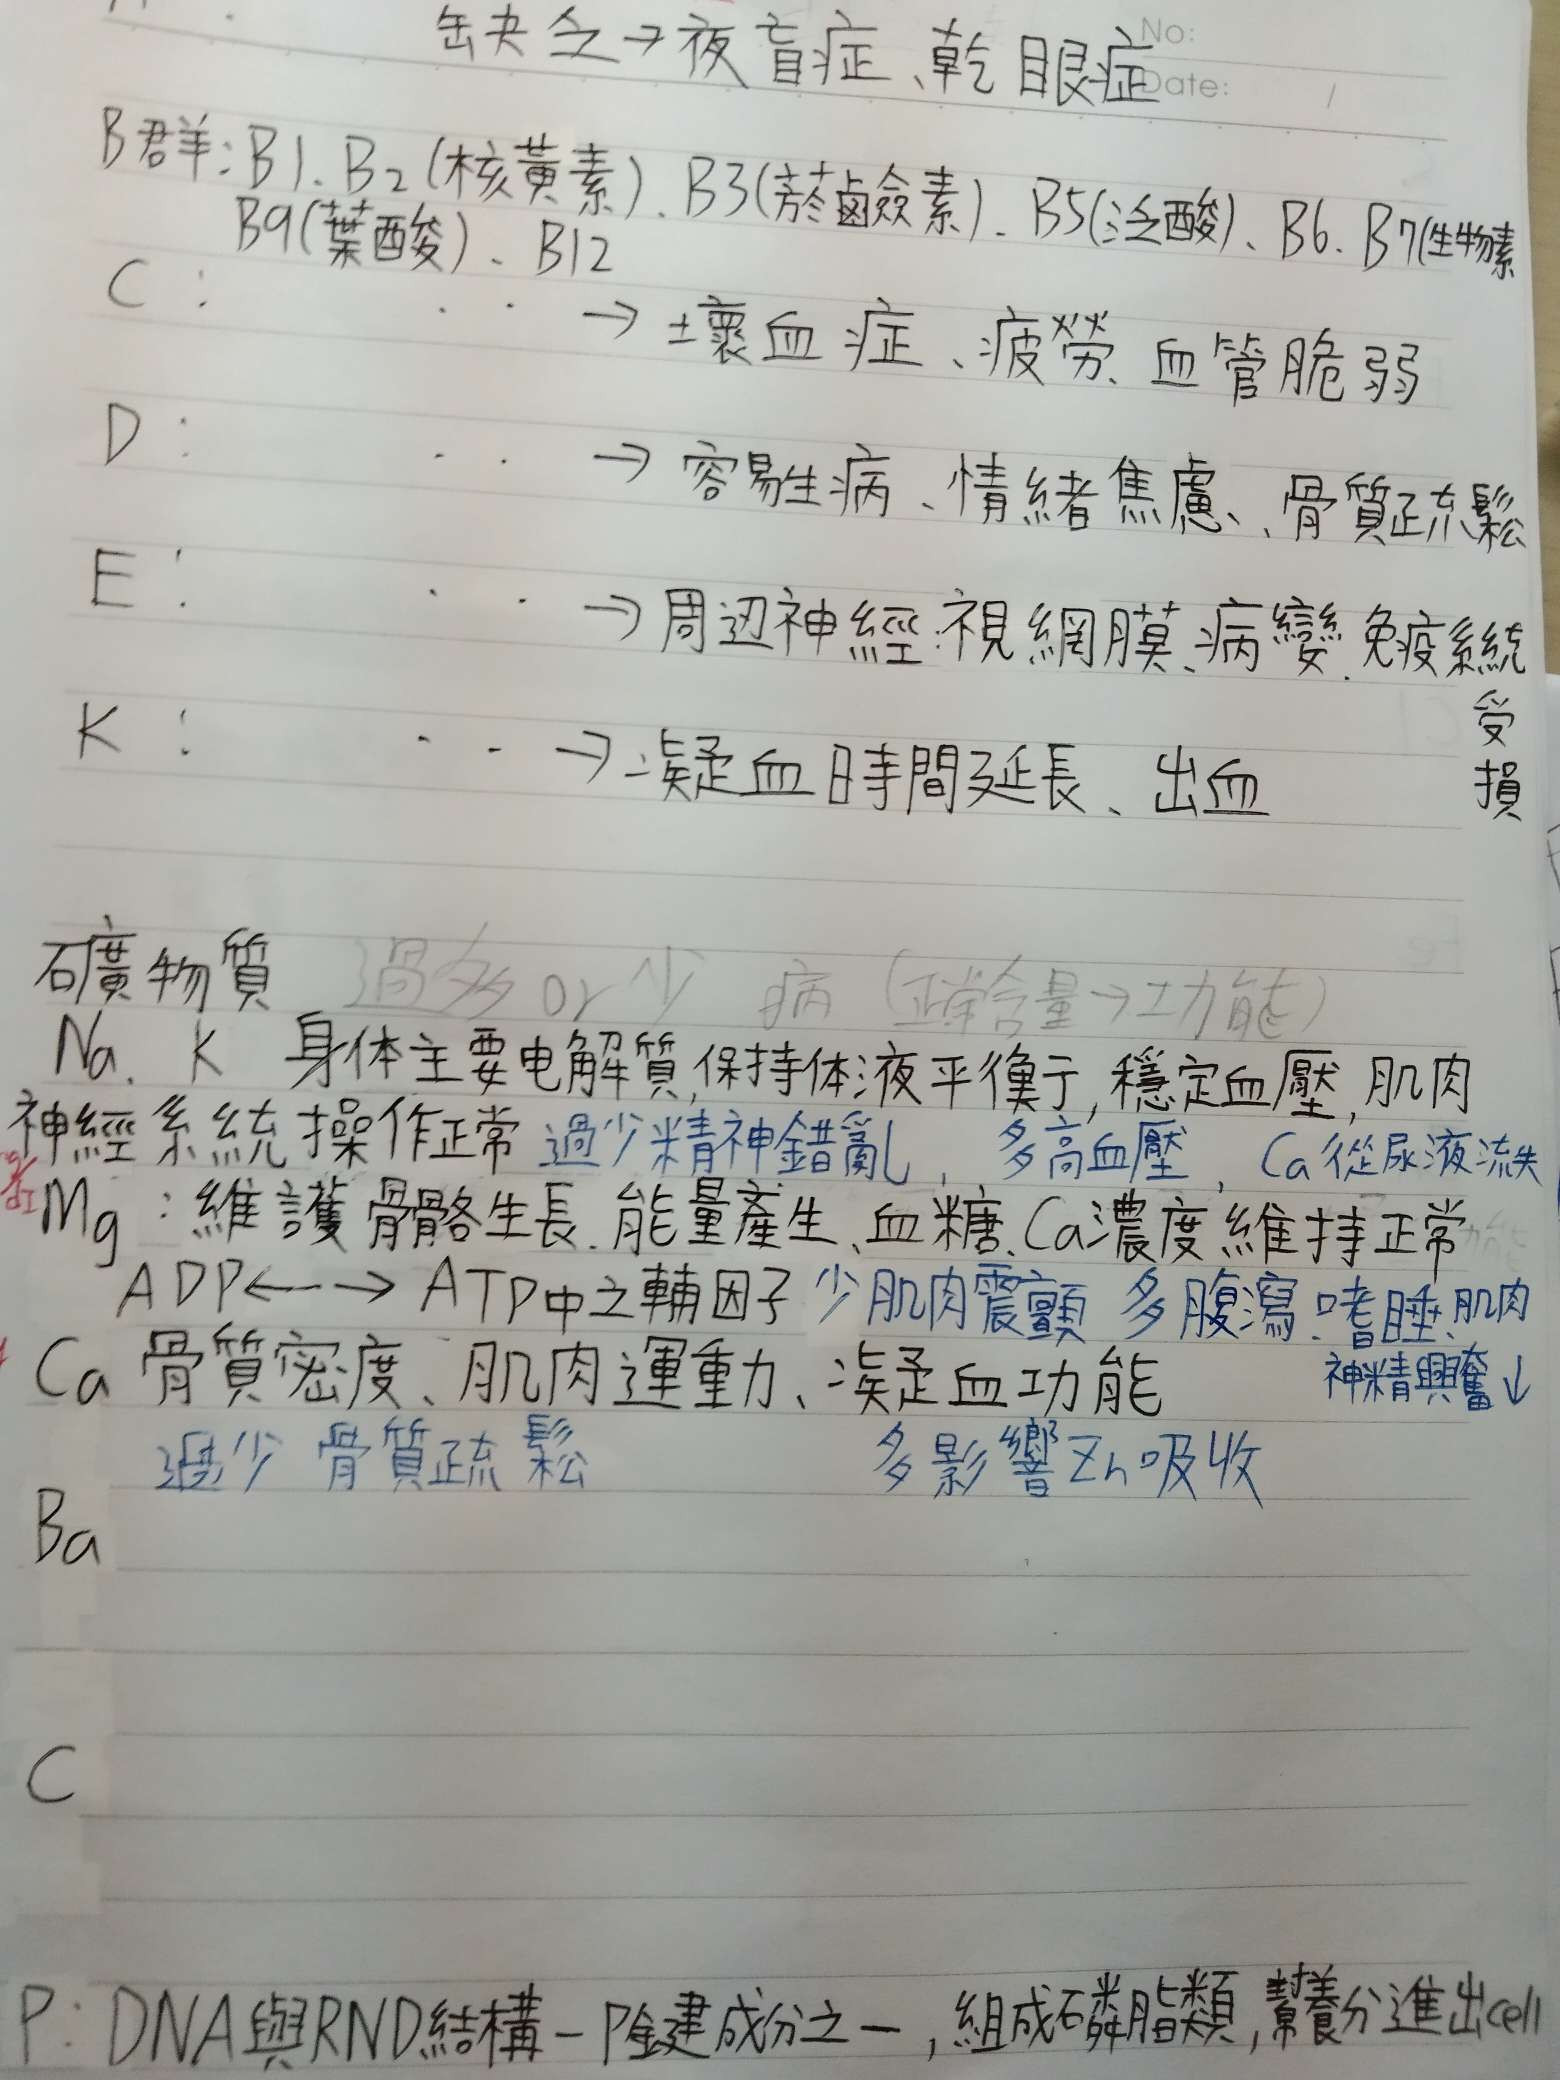 缺乏→夜盲症、乾眼症
No:
Date: /
B群:B1、B2(核黃素)、B3(菸鹼素)、B5(泛酸)、B6、B7(生物素
B9(葉酸)、B12
C: . . →壞血症、疲勞、血管脆弱
D: . . →容易生病、情緒焦慮、骨質疏鬆
E: . . →周边神經.視網膜、病變.免疫系統
受損
K: . . →凝血時間延長、出血
礦物質 過多or少 病 (正常含量→功能)
Na. K 身体主要电解質,保持体液平衡,穩定血壓,肌肉
神經系統操作正常 過少精神錯亂, 多高血壓, Ca從尿液流失
Mg:維護骨骼生長.能量產生、血糖、Ca濃度維持正常
ADP←→ATP中之輔因子 少肌肉震顫 多腹瀉.嗜睡.肌肉
神精興奮↓
Ca 骨質密度、肌肉運動、凝血功能
過少 骨質疏鬆 多影響Zn吸收
Ba
C
P:DNA與RND結構-P鍵成份之一,組成磷脂類,幫養分進出cell